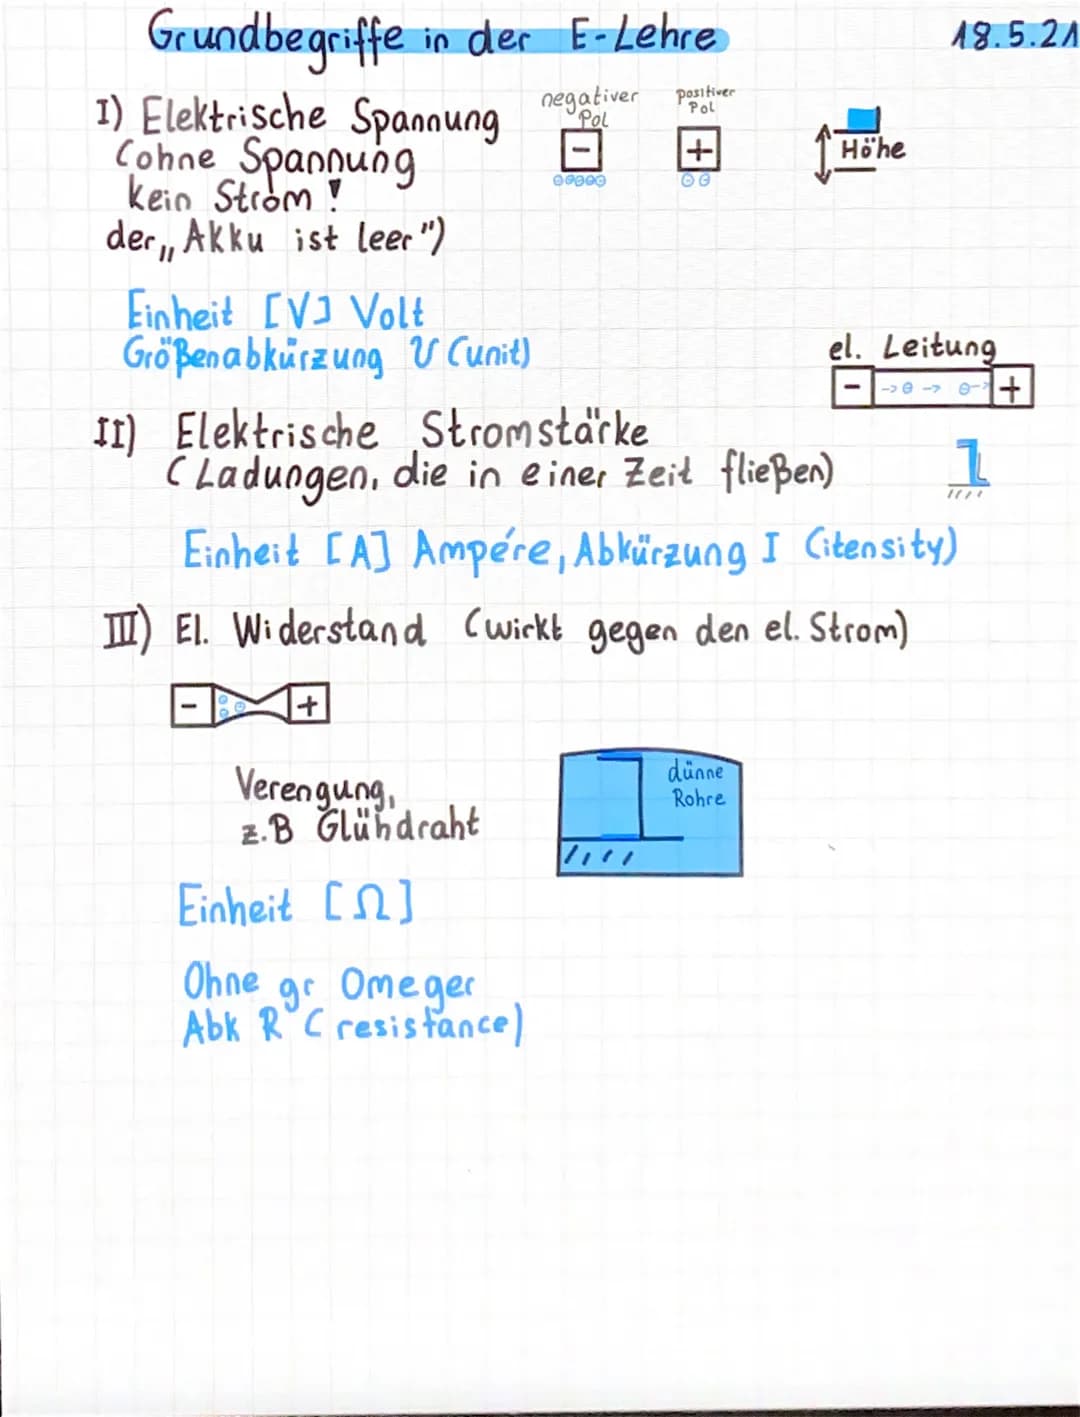 Grundbegriffe in der E-Lehre
18.5.21
I) Elektrische Spannung
(ohne Spannung
kein Strom!
der „Akku ist leer")
negativer
Pol
-
⊖⊖⊖⊖⊖
positiver
Pol
+
⊖⊖
Höhe
Einheit [V] Volt
Größenabkürzung U (unit)
el. Leitung
- ->⊖ -> ⊖-> +
II) Elektrische Stromstärke
(Ladungen, die in einer Zeit fließen)
Einheit [A] Ampére, Abkürzung I (itensity)
III) El. Widerstand (wirkt gegen den el. Strom)
- ⊖⊖⊖ +
Verengung,
z.B Glühdraht
dünne
Rohre
Einheit [Ω]
Ohne gr Omeger
Abk R (resistance)